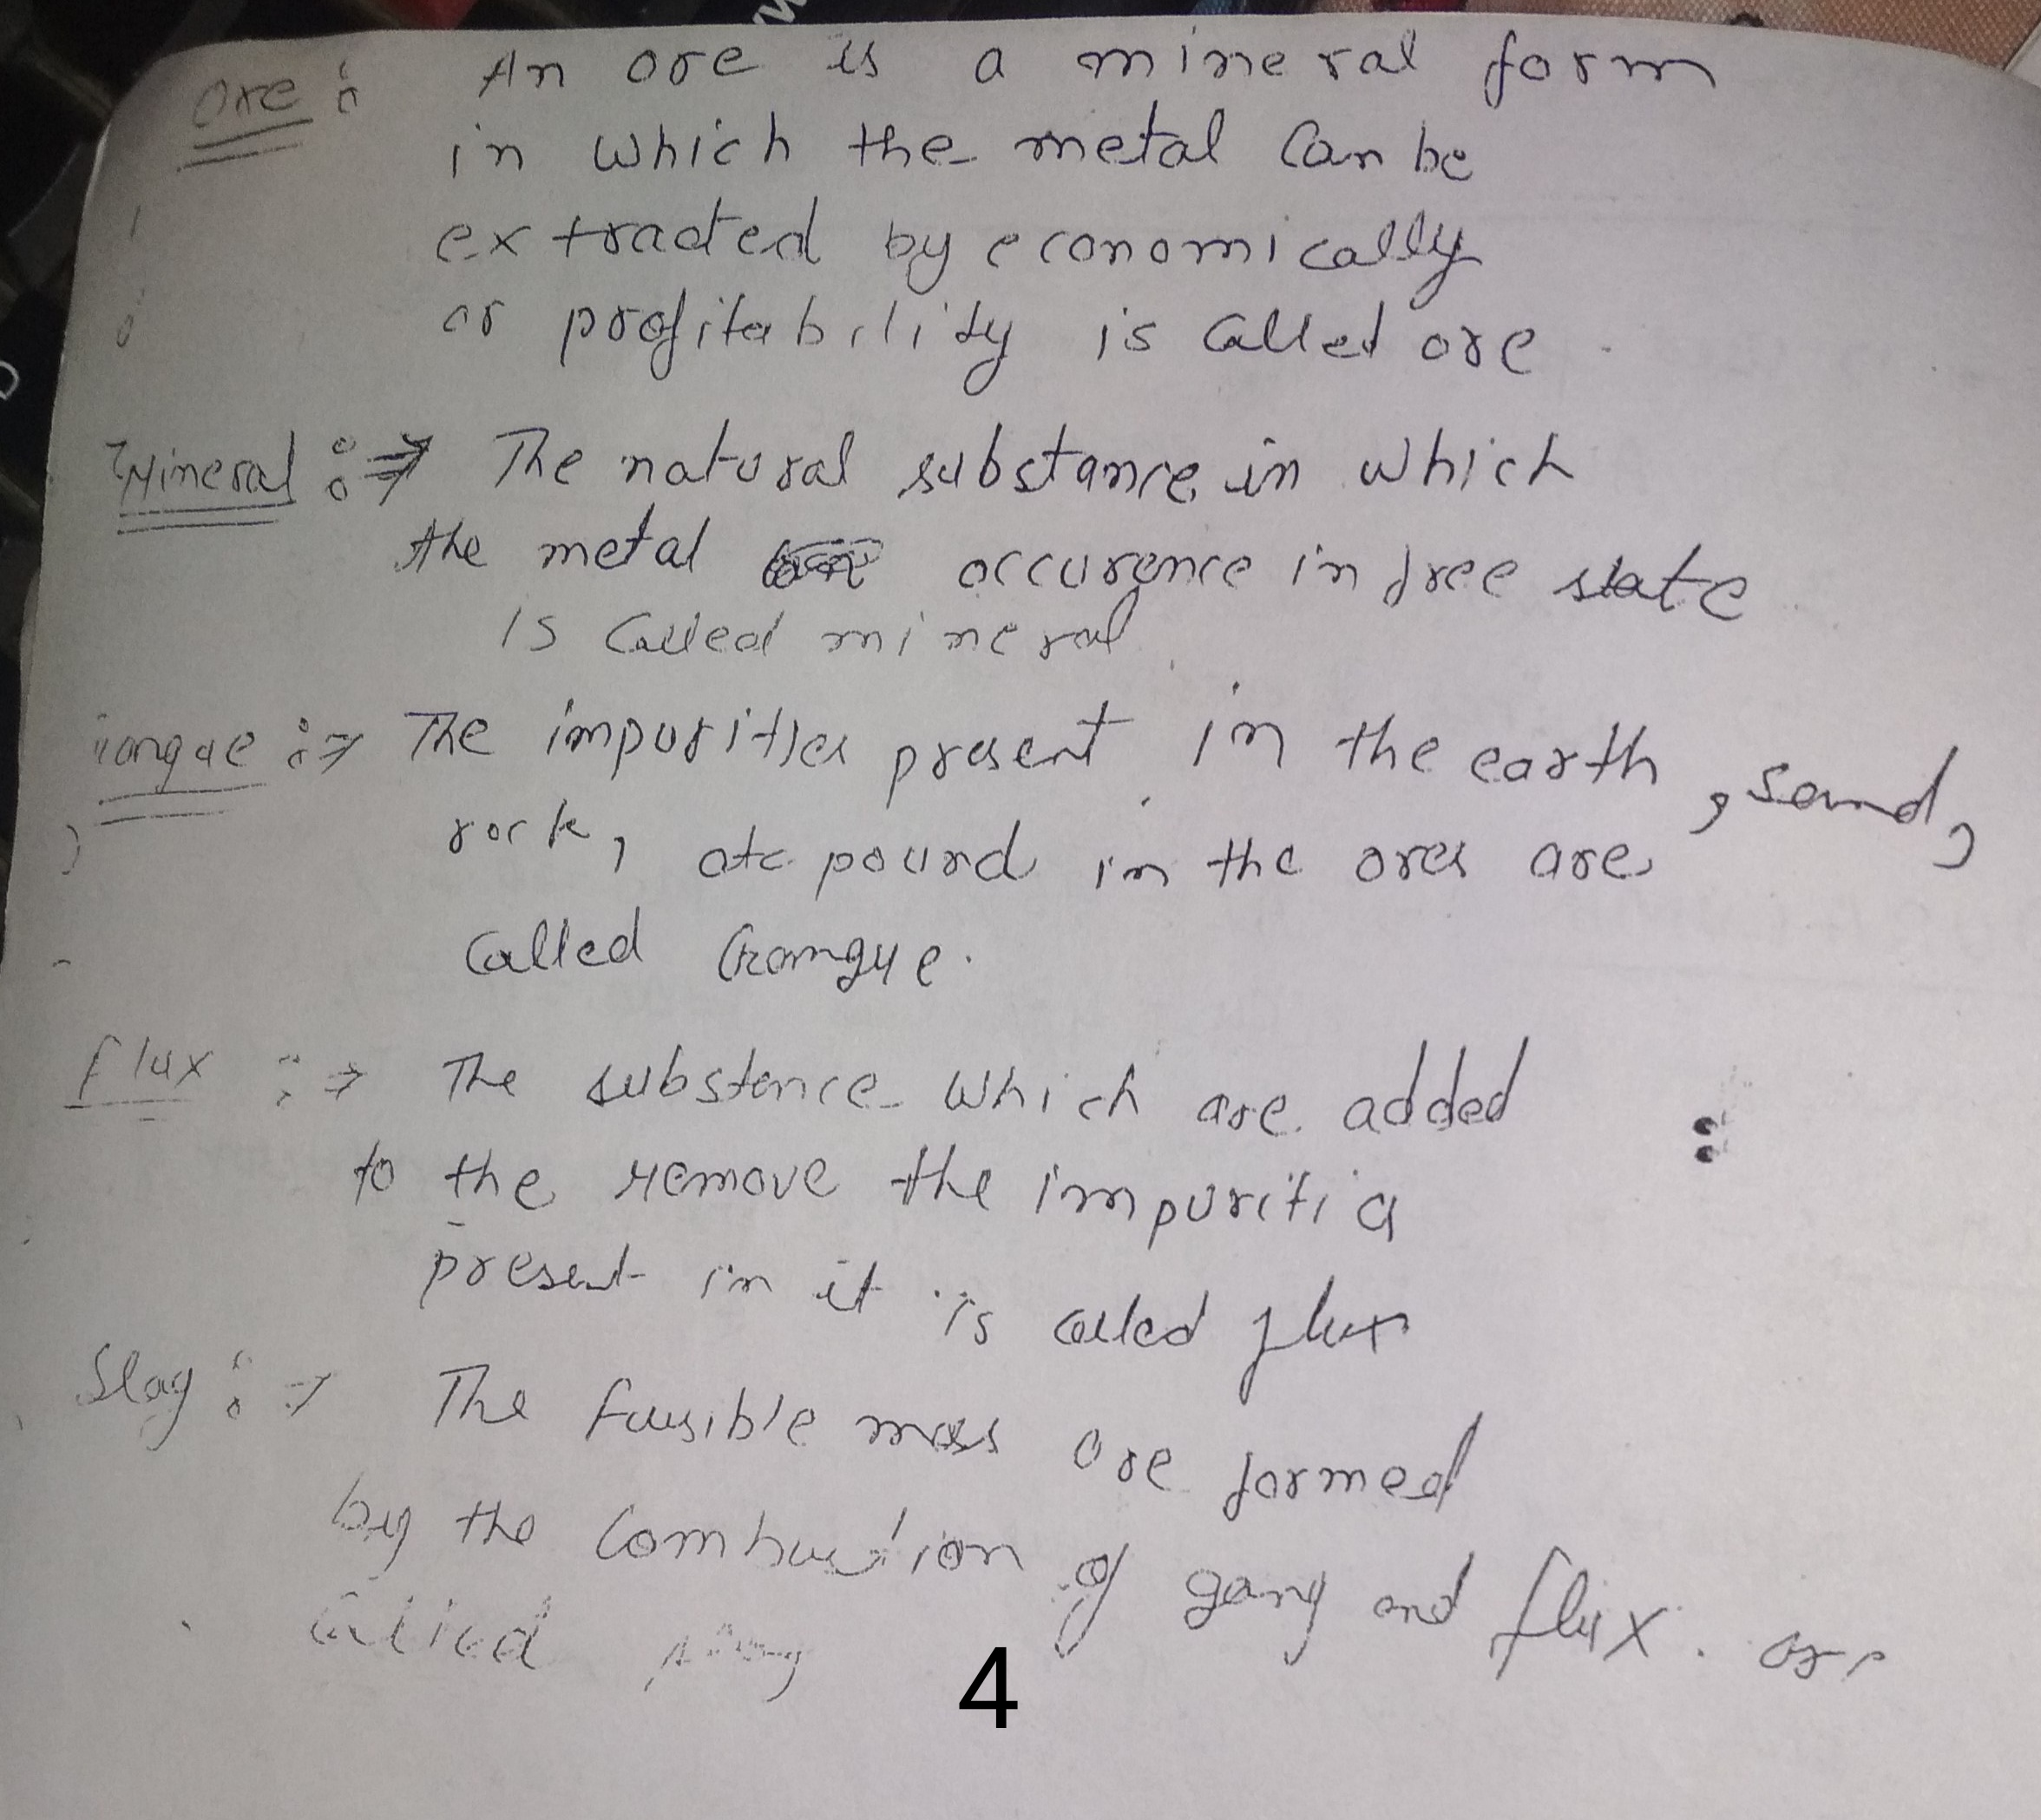 Ore : An ore is a mineral form
in which the metal can be
extracted by economically
or profitability is called ore .
Mineral :⇒ The natural substance in which
the metal occurence in free state
is called mineral.
angue :⇒ The impurities present in the earth , sand ,
rock , etc pound in the ores are
called Gangue .
flux :⇒ The substance which are added
to the remove the impuriti
present in it is called flux
Slag :⇒ The fusible mass are formed
by the combustion of gang and flux . are
called slag
4